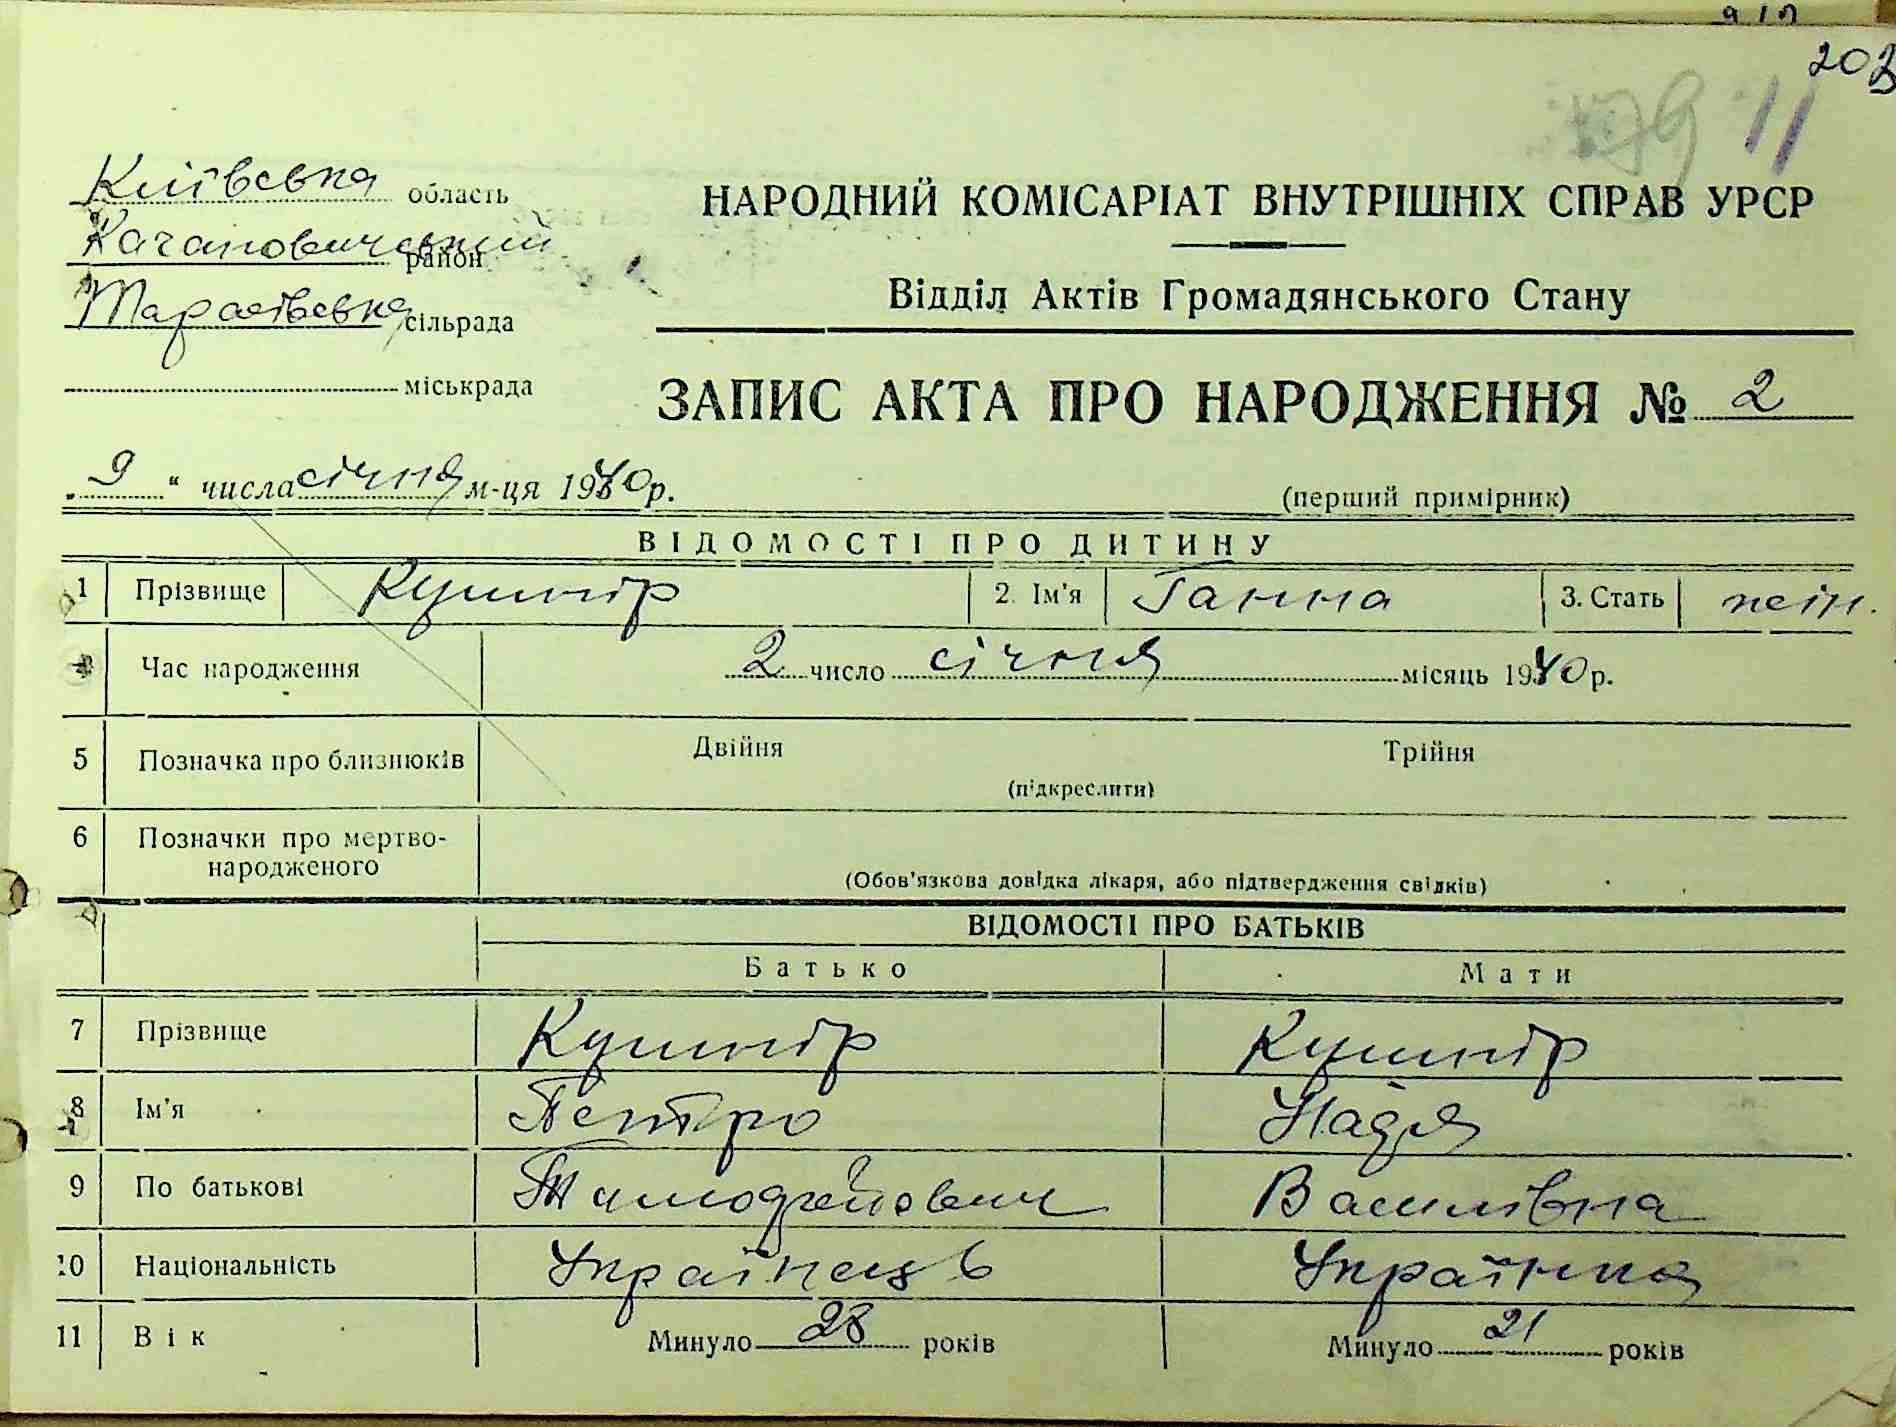 203
79 11
Київська область
Кагановичський район
Тарасівська сільрада
міськрада
НАРОДНИЙ КОМІСАРІАТ ВНУТРІШНІХ СПРАВ УРСР
Відділ Актів Громадянського Стану
ЗАПИС АКТА ПРО НАРОДЖЕННЯ № 2
„ 9 “ числа січня м-ця 1940 р.
(перший примірник)
ВІДОМОСТІ ПРО ДИТИНУ
1 Прізвище Кушнір 2. Ім'я Ганна 3. Стать жін.
4 Час народження 2 число січня місяць 1940 р.
5 Позначка про близнюків Двійня Трійня
(підкреслити)
6 Позначки про мертво-
народженого
(Обов'язкова довідка лікаря, або підтвердження свідків)
ВІДОМОСТІ ПРО БАТЬКІВ
Батько Мати
7 Прізвище Кушнір Кушнір
8 Ім'я Петро Надя
9 По батькові Тимофейович Василівна
10 Національність Українець Українка
11 Вік Минуло 28 років Минуло 21 років